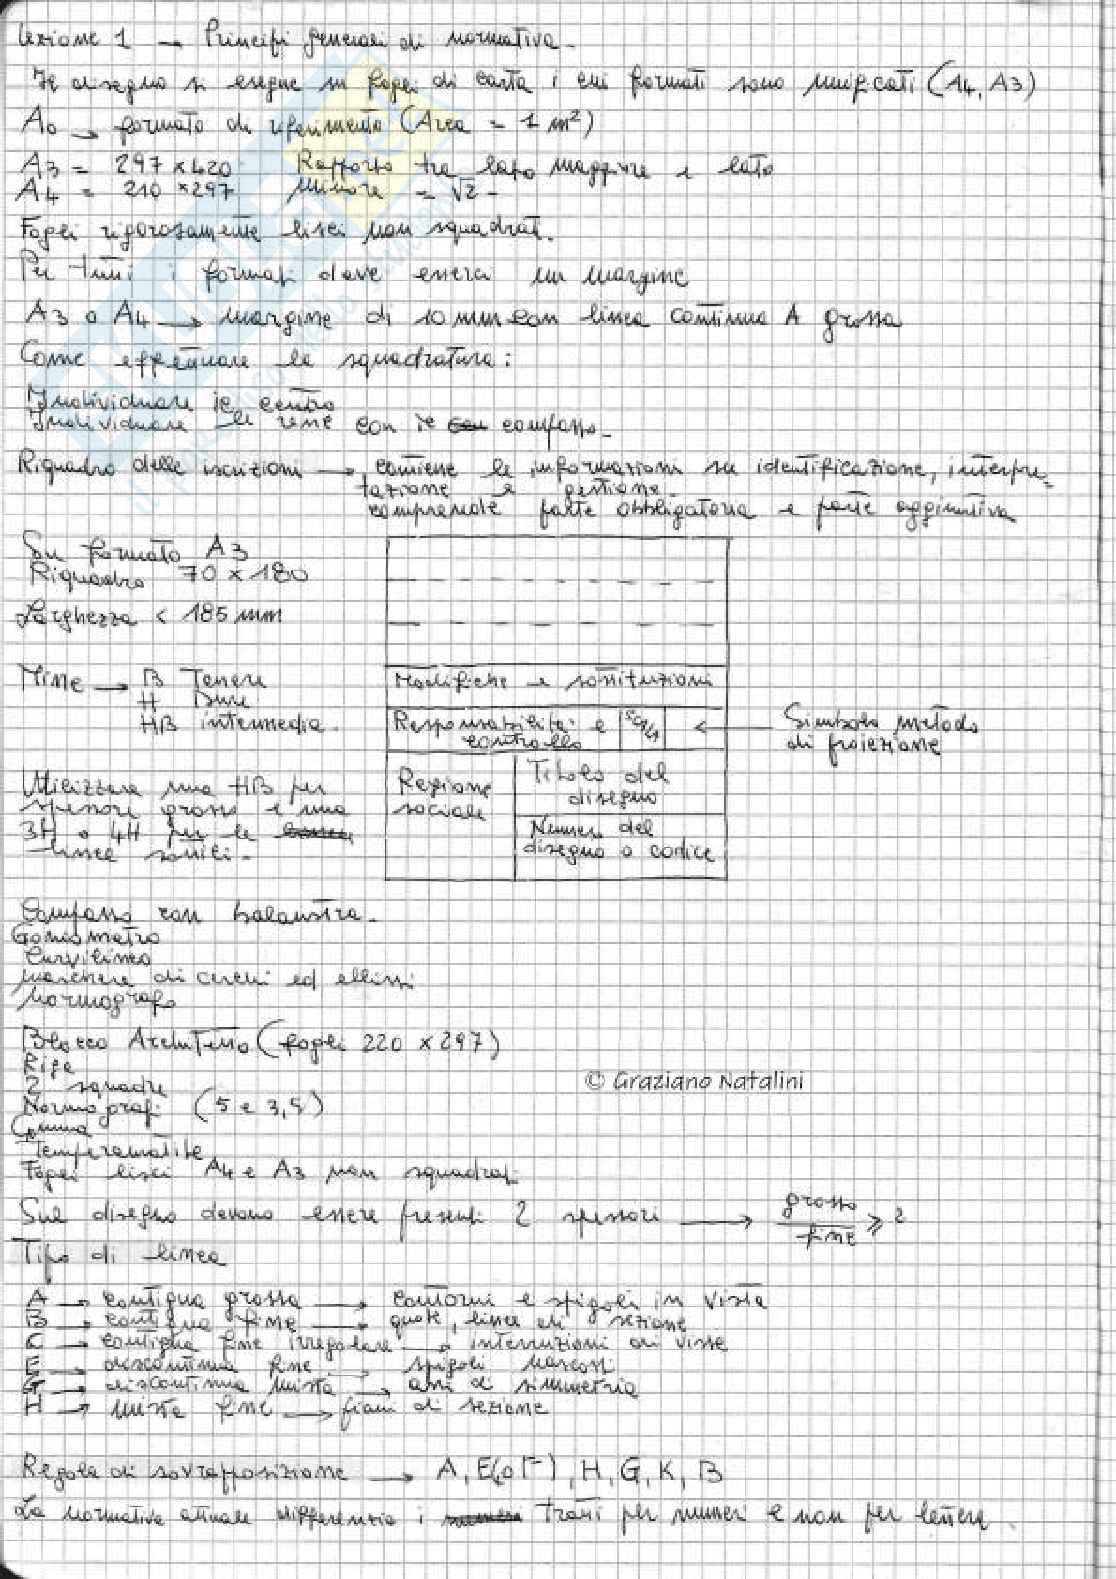 Lezione 1 → Principi generali di normativa.
Il disegno si esegue su fogli di carta i cui formati sono unificati (A4, A3)
A0 → formato di riferimento (Area = 1 m²)
A3 = 297 × 420 Rapporto tra lato maggiore e lato
A4 = 210 × 297 minore = √2 -
Fogli rigorosamente lisci non squadrati.
Per tutti i formati deve esserci un margine
A3 o A4 → margine di 10 mm con linea continua A grossa
Come effettuare la squadratura:
Individuare il centro
Individuare le rette con il compasso.
Riquadro delle iscrizioni → contiene le informazioni su identificazione, interpre=
tazione e gestione.
comprende parte obbligatoria e parte aggiuntiva
Su formato A3
Riquadro 70 × 180
Larghezza < 185 mm
Mine → B Tenere
H Dure
HB intermedia.
Modifiche e sostituzioni
Responsabilità e controllo
Scala
← Simbolo metodo
di proiezione
Ragione
sociale
Titolo del
disegno
Numero del
disegno o codice
Utilizzare una HB per
spessore grosso e una
3H o 4H per le
linee sottili.
Compasso con balaustra.
Goniometro
Curvilineo
maschere di cerchi ed ellissi
Normografo
Blocco Architetto (fogli 220 × 297)
Riga
2 squadre
Normografi (5 e 3,5)
Gomma
Temperamatite
Fogli lisci A4 e A3 non squadrati
© Graziano Natalini
Sul disegno devono essere presenti 2 spessori → grosso/fine ≥ 2
Tipo di linea
A → continua grossa → contorni e spigoli in vista
B → continua fine → quote, linee di sezione
C → continua fine irregolare → interruzioni di viste
E → discontinua fine → spigoli nascosti
G → discontinua mista → assi di simmetria
H → mista fine → piani di sezione
Regola di sovrapposizione → A, E(o F), H, G, K, B
La normativa attuale differenzia i tratti per numeri e non per lettere